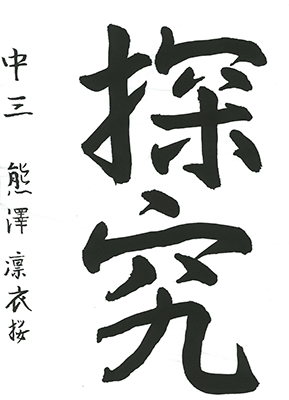 探究
中三 熊澤凛衣桜